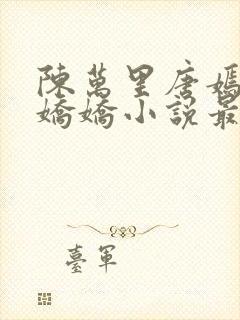 陳萬里唐嫣
嬌嬌小說最
臺軍